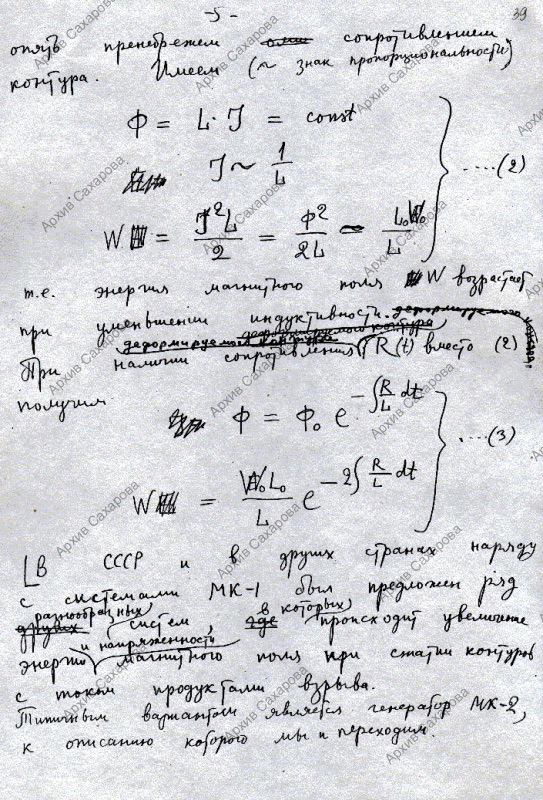 -5-
39
опять пренебрежем сопротивлением
контура. Имеем (~ знак пропорциональности)
Ф = L·J = const
J ~ 1/L
W = J²L/2 = Ф²/2L ~ L₀W₀/L ....(2)
т.е. энергия магнитного поля W возрастает
при уменьшении индуктивности. деформируемого контура.
деформируемого контура
При наличии сопротивления R(t) вместо (2)
получим
Ф = Ф₀ e^{-∫R/L dt}
W = W₀L₀/L e^{-2∫R/L dt} ....(3)
[В СССР и в других странах наряду
с системами МК-1 был предложен ряд
разнообразных в которых
других систем, где происходит увеличение
и напряженности
энергии магнитного поля при сжатии контуров
с током продуктами взрыва.
Типичным вариантом является генератор МК-2,
к описанию которого мы и переходим.
Архив Сахарова